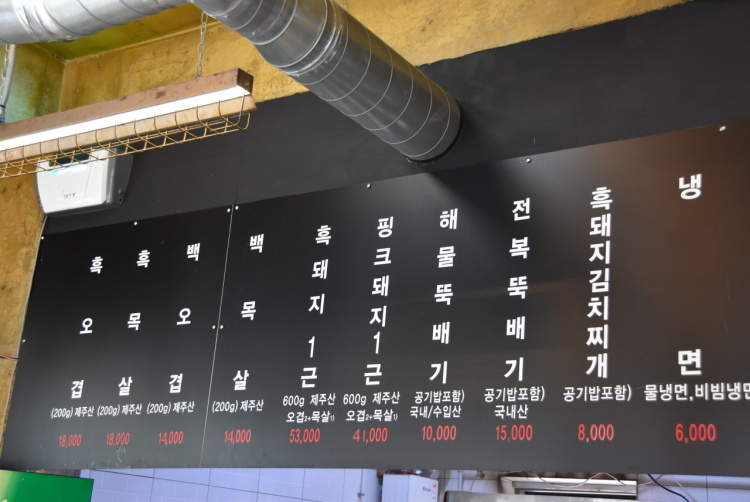 흑오겹
(200g) 제주산
18,000
흑목살
(200g) 제주산
18,000
백오겹
(200g) 제주산
14,000
백목살
(200g) 제주산
14,000
흑돼지1근
600g 제주산
오겹2+목살1)
53,000
핑크돼지1근
600g 제주산
오겹2+목살1)
41,000
해물뚝배기
공기밥포함)
국내/수입산
10,000
전복뚝배기
공기밥포함)
국내산
15,000
흑돼지김치찌개
공기밥포함)
8,000
냉면
물냉면,비빔냉면
6,000